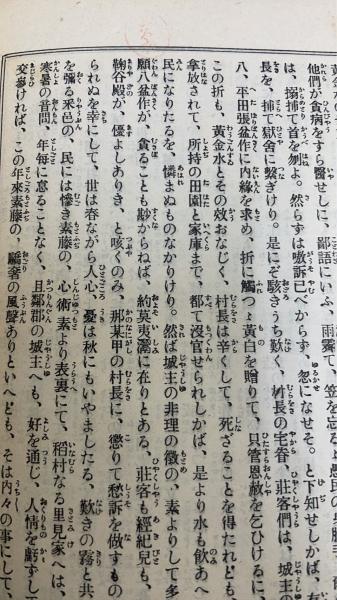 他們が貪病をすら醫せしに、鄙語にいふ、雨霽て、笠を忘るゝ愚民の
は、搦捕て首を刎よ。然らずは嗷訴已べからず、忽になせそ。と下知せしかば、
長を、捕て獄舍に繋ぎけり。是にぞ駭きうち歎く、村長の宅眷、莊客們は、城主の
八、平田張盆作に内縁を求め、折に觸つゝ黄白を贈りて、只管恩赦を乞ひけるに、
この折も、黄金水とその效おなじく、村長は辛くして、死ざることを得たれども、
拿放されて、所持の田園と家庫まで、都て沒官せられしかば、是より水も飲あへ
民になりたるを、憐まぬものなかりけり。然ば城主の非理の徴の、素よりして多
願八盆作が、貪ることも尠からねば、約莫夷灊に在りとある、莊客も經紀兒も、
鞠谷殿が、優よしありき、と咳くのみ、那某甲の村長に、懲りて愁訴を做すもの
られぬを幸にして、世は春ながら人心、憂は秋にもいやましたる、歎きの霧と共
を彌る釆邑の、民には慘き素藤の、心術素より表裏にて、稻村なる里見家へは、
寒暑の音問、年毎に怠ることなく、且鄰郡の城主へも、好を通じ、人情を虧ずし
交參ければ、この年來素藤の、驕奢の風聲ありといへども、そは内々の事にして、